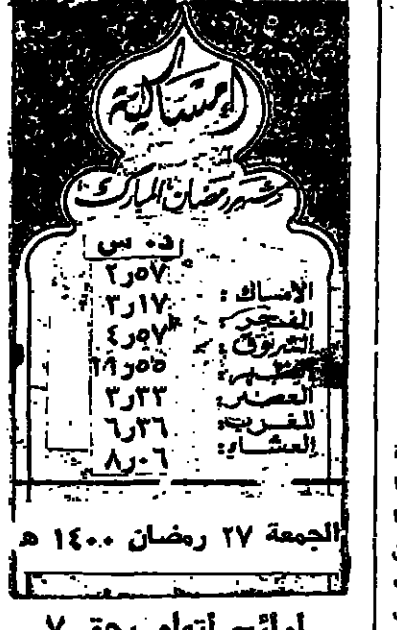 إمساكية
شهر رمضان المبارك
د. س
الامساك : ٥٧ر٢
الفجر : ١٧ر٣
الشروق : ٥٧ر٤
الظهر : ٥٥ر١١
العصر : ٣٣ر٣
المغرب : ٣٦ر٦
العشاء : ٠٦ر٨
الجمعة ٢٧ رمضان ١٤٠٠ هـ